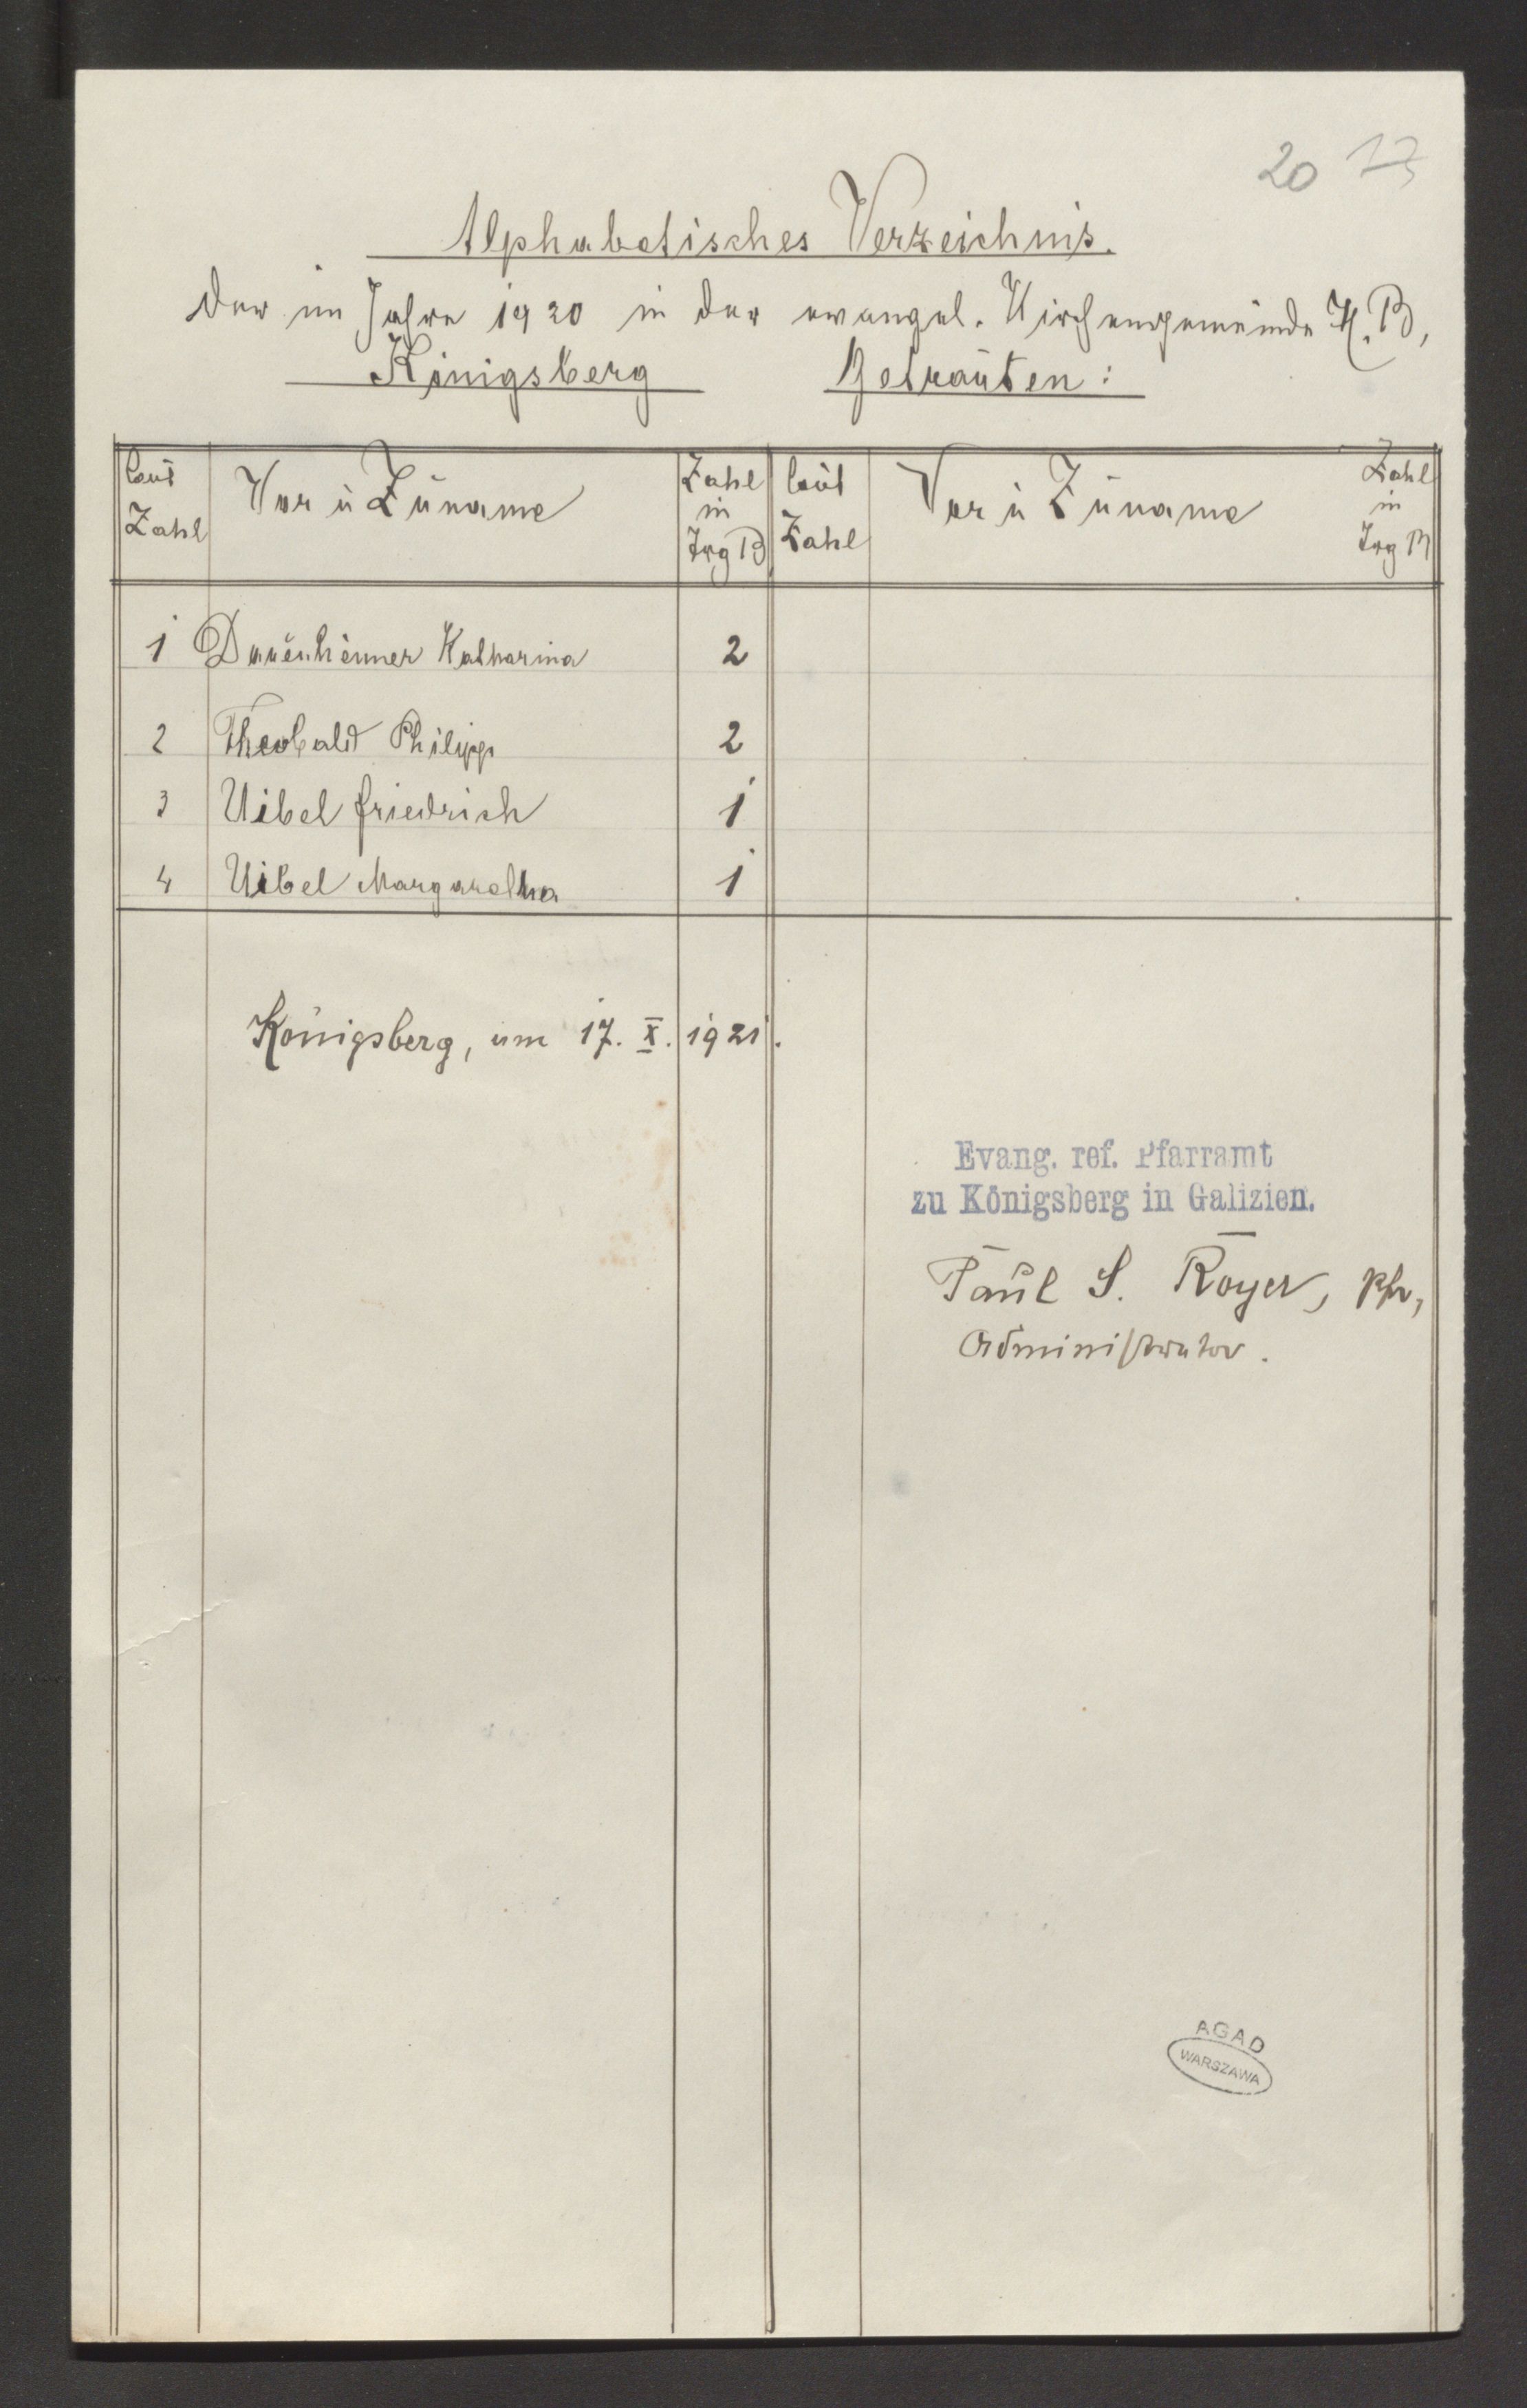 20 17
Alphabetisches Verzeichnis.
der im Jahre 1920 in der evangel. Kirchengemeinde H. B,
Königsberg Getrauten:
lauf Zahl
Vor u Zuname
Zahl in Trg B
lauf Zahl
Vor u Zuname
Zahl in Trg B
1 Dauenhauer Katharina 2
2 Theobald Philipp 2
3 Uibel Friedrich 1
4 Uibel Margaretha 1
Königsberg, am 17. X. 1921.
Evang. ref. Pfarramt
zu Königsberg in Galizien.
Paul S. Royer, Pfr,
Administrator.
AGAD
WARSZAWA